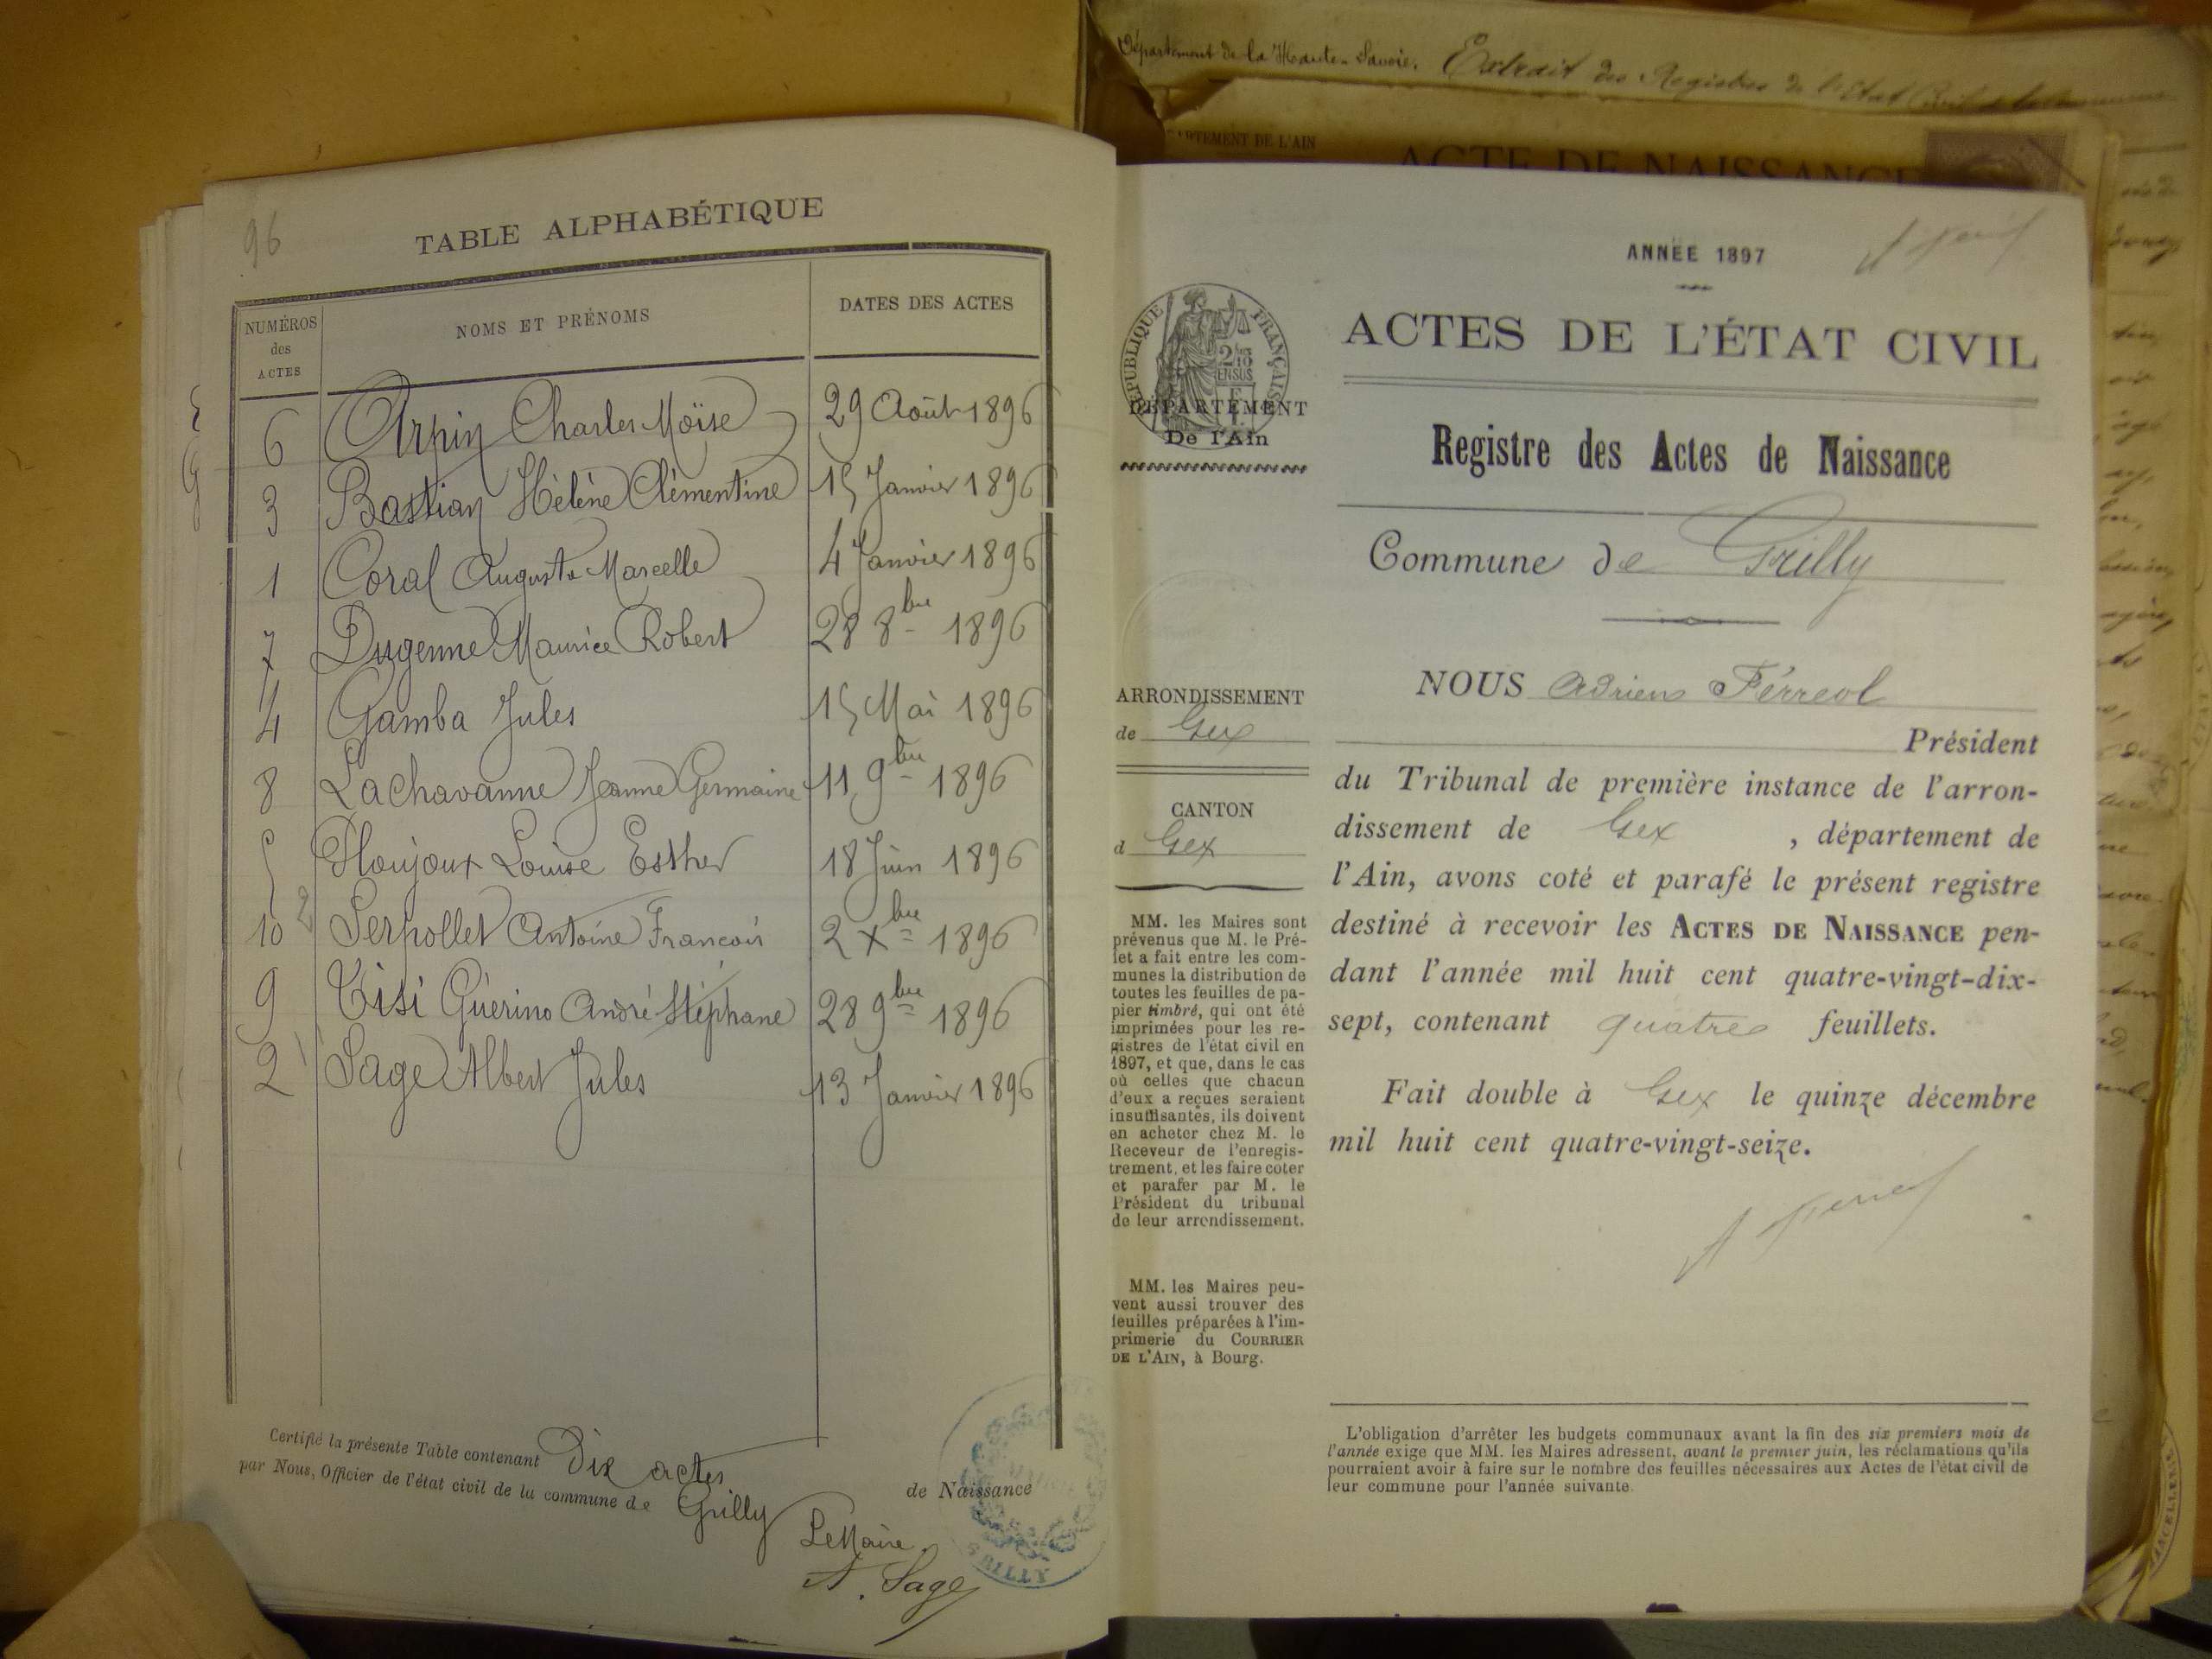 Département de la Haute-Savoie. Extrait des Registres de l'Etat Civil
ARTEMENT DE L'AIN
ACTE DE NAISSANCE
96
TABLE ALPHABÉTIQUE
NUMÉROS des ACTES
NOMS ET PRÉNOMS
DATES DES ACTES
6 Arpin Charles Moïse 29 Août 1896
3 Bastian Hélène Clémentine 15 Janvier 1896
1 Coral Auguste Marcelle 4 Janvier 1896
7 Dugenne Maurice Robert 28 8bre 1896
4 Gamba Jules 15 Mai 1896
8 Lachavanne Jeanne Germaine 11 9bre 1896
5 Ploujoux Louise Esther 18 Juin 1896
10 Serpollet Antoine Francois 2 Xbre 1896
9 Tisi Guérino André Stéphane 28 9bre 1896
2 Sage Albert Jules 13 Janvier 1896
Certifié la présente Table contenant Dix actes de Naissance
par Nous, Officier de l'état civil de la commune de Grilly
Le Maire
A. Sage
GRILLY
ANNÉE 1897
ACTES DE L'ÉTAT CIVIL
RÉPUBLIQUE FRANÇAISE
2/10 EN SUS
DÉPARTEMENT
De l'Ain
Registre des Actes de Naissance
Commune de Grilly
ARRONDISSEMENT
de Gex
CANTON
d Gex
MM. les Maires sont
prévenus que M. le Pré-
fet a fait entre les com-
munes la distribution de
toutes les feuilles de pa-
pier timbré, qui ont été
imprimées pour les re-
gistres de l'état civil en
1897, et que, dans le cas
où celles que chacun
d'eux a reçues seraient
insuffisantes, ils doivent
en acheter chez M. le
Receveur de l'enregis-
trement, et les faire coter
et parafer par M. le
Président du tribunal
de leur arrondissement.
MM. les Maires peu-
vent aussi trouver des
feuilles préparées à l'im-
primerie du COURRIER
DE L'AIN, à Bourg.
NOUS Adrien Férreol
Président
du Tribunal de première instance de l'arron-
dissement de Gex , département de
l'Ain, avons coté et parafé le présent registre
destiné à recevoir les ACTES DE NAISSANCE pen-
dant l'année mil huit cent quatre-vingt-dix-
sept, contenant quatre feuillets.
Fait double à Gex le quinze décembre
mil huit cent quatre-vingt-seize.
L'obligation d'arrêter les budgets communaux avant la fin des six premiers mois de
l'année exige que MM. les Maires adressent, avant le premier juin, les réclamations qu'ils
pourraient avoir à faire sur le nombre des feuilles nécessaires aux Actes de l'état civil de
leur commune pour l'année suivante.